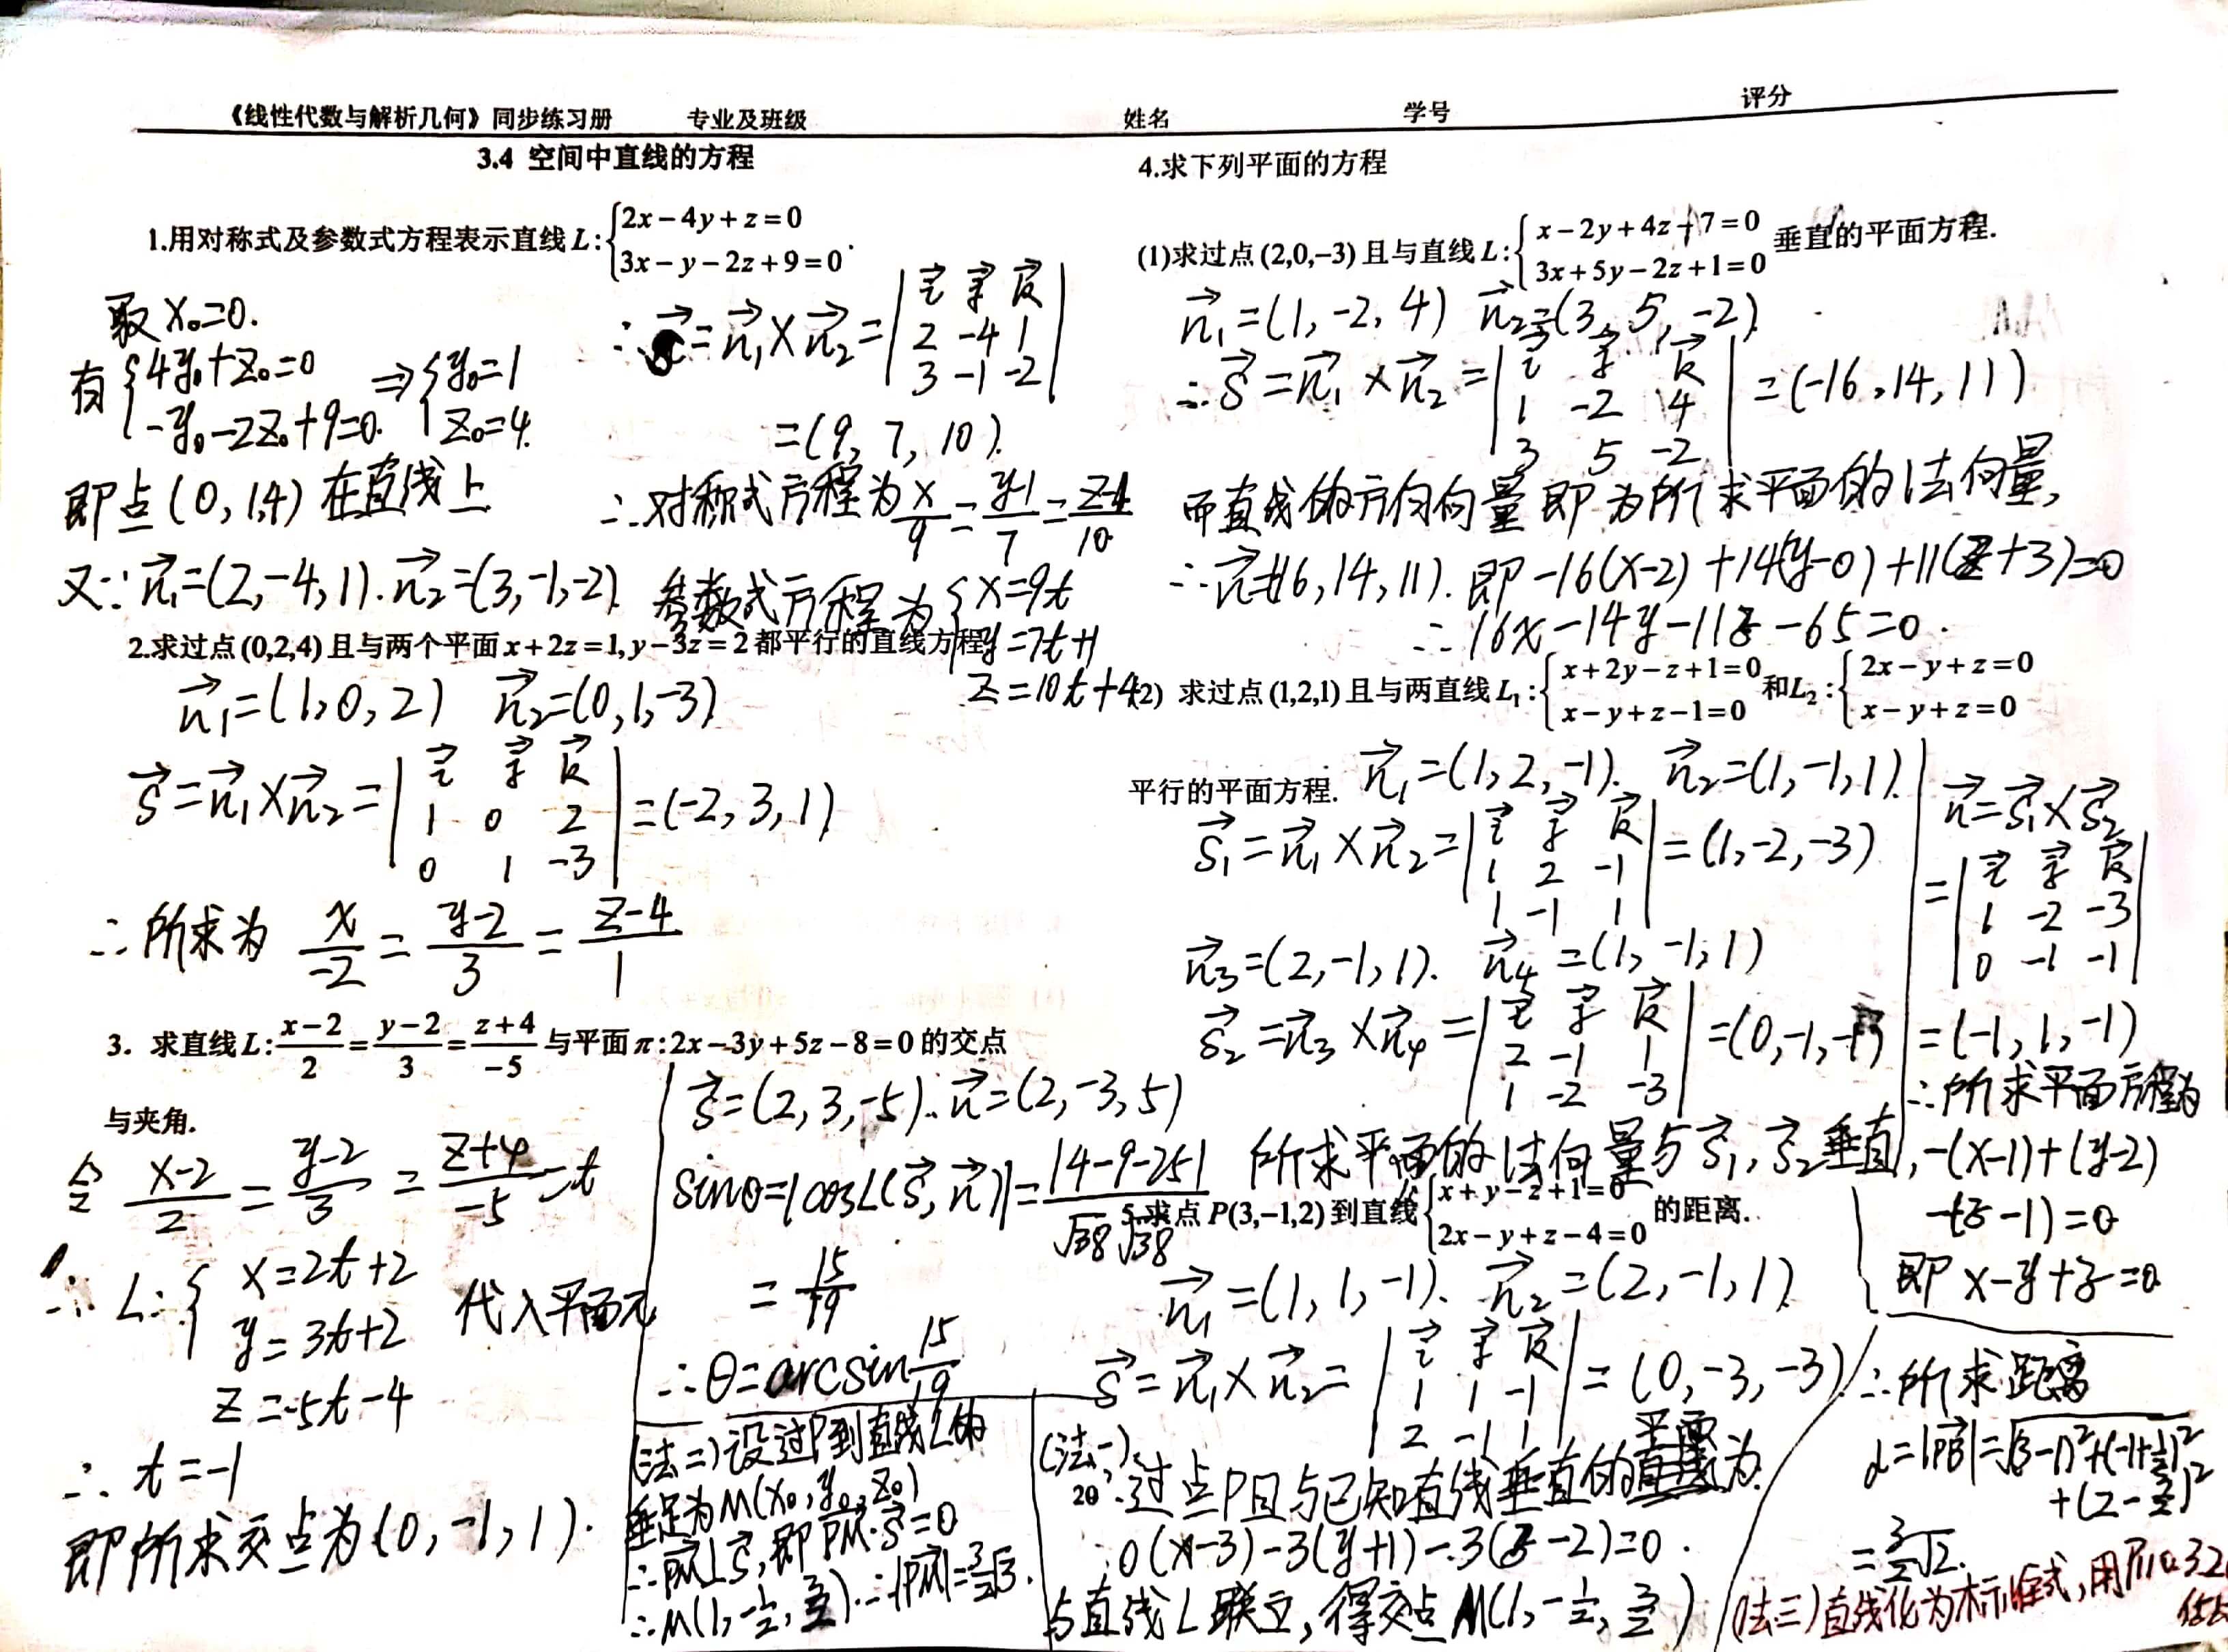 《线性代数与解析几何》同步练习册 专业及班级 姓名 学号 评分
3.4 空间中直线的方程
1.用对称式及参数式方程表示直线L:{2x-4y+z=0
3x-y-2z+9=0.
取x₀=0.
有{4y₀+z₀=0
-y₀-2z₀+9=0. ⇒{y₀=1
z₀=4.
即点(0,1,4)在直线上
又∵n₁=(2,-4,1). n₂=(3,-1,-2).
∴s=n₁×n₂=|i j k
2 -4 1
3 -1 -2|
=(9,7,10).
∴对称式方程为x/9=(y-1)/7=(z-4)/10
参数式方程为{x=9t
y=7t+1
z=10t+4
2.求过点(0,2,4)且与两个平面x+2z=1,y-3z=2都平行的直线方程.
n₁=(1,0,2) n₂=(0,1,-3).
s=n₁×n₂=|i j k
1 0 2
0 1 -3|=(-2,3,1)
∴所求为 x/-2=(y-2)/3=(z-4)/1
3. 求直线L:(x-2)/2=(y-2)/3=(z+4)/-5与平面π:2x-3y+5z-8=0的交点
与夹角.
令(x-2)/2=(y-2)/3=(z+4)/-5=t
∴L:{x=2t+2
y=3t+2
z=-5t-4
代入平面π
∴t=-1
即所求交点为(0,-1,1).
s=(2,3,-5). n=(2,-3,5)
sinθ=|cos∠(s,n)|=|4-9-25|/√38√38
=15/19
∴θ=arcsin15/19
4.求下列平面的方程
(1)求过点(2,0,-3)且与直线L:{x-2y+4z+7=0
3x+5y-2z+1=0 垂直的平面方程.
n₁=(1,-2,4) n₂=(3,5,-2).
∴s=n₁×n₂=|i j k
1 -2 4
3 5 -2|=(-16,14,11)
而直线的方向向量即为所求平面的法向量,
∴n=(-16,14,11). 即-16(x-2)+14(y-0)+11(z+3)=0
∴16x-14y-11z-65=0.
(2) 求过点(1,2,1)且与两直线L₁:{x+2y-z+1=0
x-y+z-1=0 和L₂:{2x-y+z=0
x-y+z=0
平行的平面方程.
n₁=(1,2,-1). n₂=(1,-1,1).
s₁=n₁×n₂=|i j k
1 2 -1
1 -1 1|=(1,-2,-3)
n₃=(2,-1,1). n₄=(1,-1,1)
s₂=n₃×n₄=|i j k
2 -1 1
1 -2 -3|=(0,-1,-1)
所求平面的法向量与s₁,s₂垂直,
n=s₁×s₂
=|i j k
1 -2 -3
0 -1 -1|
=(-1,1,-1)
∴所求平面方程为
-(x-1)+(y-2)
-(z-1)=0
即x-y+z=0
5.求点P(3,-1,2)到直线{x+y-z+1=0
2x-y+z-4=0 的距离.
n₁=(1,1,-1). n₂=(2,-1,1).
s=n₁×n₂=|i j k
1 1 -1
2 -1 1|=(0,-3,-3)
(法一)
∴过点P且与已知直线垂直的平面为
0(x-3)-3(y+1)-3(z-2)=0.
与直线L联立,得交点M(1,-1/2,3/2)
∴所求距离
d=|PB|=√(3-1)²+(-1+1/2)²
+(2-3/2)²
=3/2√2.
(法二)设过P到直线L的
垂足为M(x₀,y₀,z₀)
∴PM⊥s,即PM·s=0
∴M(1,-1/2,3/2).∴|PM|=3/2√3.
(法三)直线化为标准式,用P110.3.2